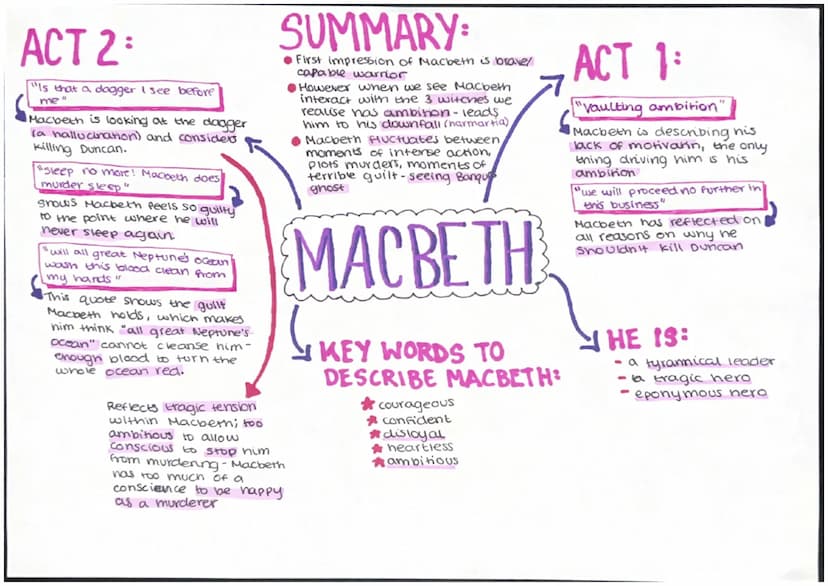 ACT 2:
"Is that a dagger I see before
me"
Macbeth is looking at the dagger
(a hallucination) and considers
killing Duncan.
"Sleep no more! Macbeth does
murder sleep"
Shows Macbeth feels so guilty
to the point where he will
never sleep again.
"will all great Neptune's ocean
wash this blood clean from
my hands"
This quote shows the guilt
Macbeth holds, which makes
him think "all great Neptune's
ocean" cannot cleanse him -
enough blood to turn the
whole ocean red.
Reflects tragic tension
within Macbeth; too
ambitious to allow
conscious to stop him
from murdering - Macbeth
has too much of a
conscience to be happy
as a murderer
SUMMARY:
First impression of Macbeth is brave/
capable warrior
However when we see Macbeth
interact with the 3 witches we
realise has ambition - leads
him to his downfall (harmartia)
Macbeth fluctuates between
moments of intense action,
plots murders, moments of
terrible guilt - seeing
ghost
MACBETH
KEY WORDS TO
DESCRIBE MACBETH:
courageous
confident
disloyal
heartless
ambitious
ACT 1:
"Vaulting ambition"
Macbeth is describing his
lack of motivation, the only
thing driving him is his
ambition
"we will proceed no further in
this business"
Macbeth has reflected on
all reasons on why he
shouldn't kill Duncan
HE IS:
- a tyrannical leader
- a tragic hero
- eponymous hero